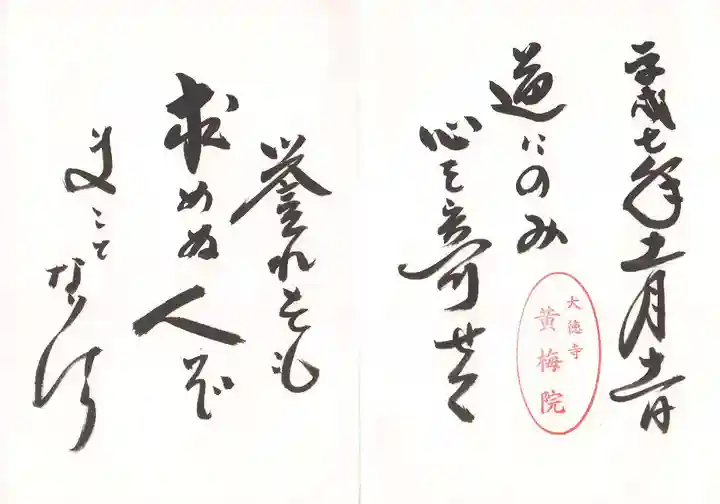 平成七年十一月十一日
道にのみ
心を寄せて
大徳寺
黄梅院
誉れをも
求めぬ人ぞ
まことなりける